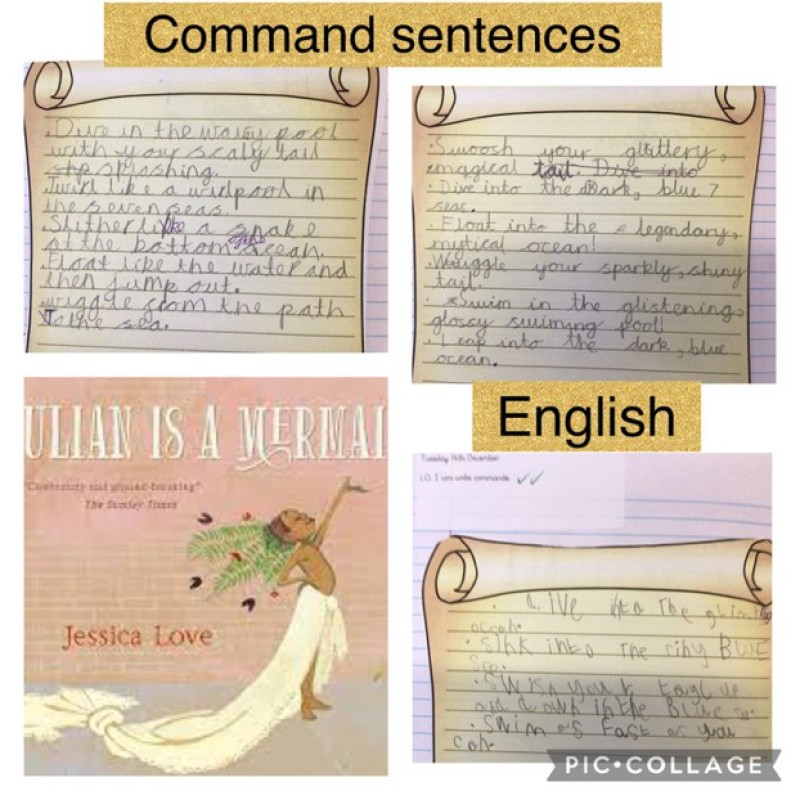 Command sentences
.Dive in the wavy pool
with your scaly tail
splashing.
.Twirl like a wirlpool in
the seven seas.
.Slither like a snake
at the bottom ocean.
.Float like the water and
then jump out.
.wriggle from the path
To the sea.
·Swoosh your glittery,
magical tail. Dive into
·Dive into the dark, blue 7
seas.
·Float into the legendary,
mystical ocean!
·Wriggle your sparkly, shiny
tail.
·Swim in the glistening,
glossy swiming pool!
·Leap into the dark, blue
ocean.
ULIAN IS A MERMAI
The Sunday Times
Jessica Love
English
Tuesday 14th December
LO: I can write commands.
into the
ocean.
·Sink into the BLUE
See.
·Swish your up
and down in the Blue
·Swim as fast as you
can.
PIC•COLLAGE